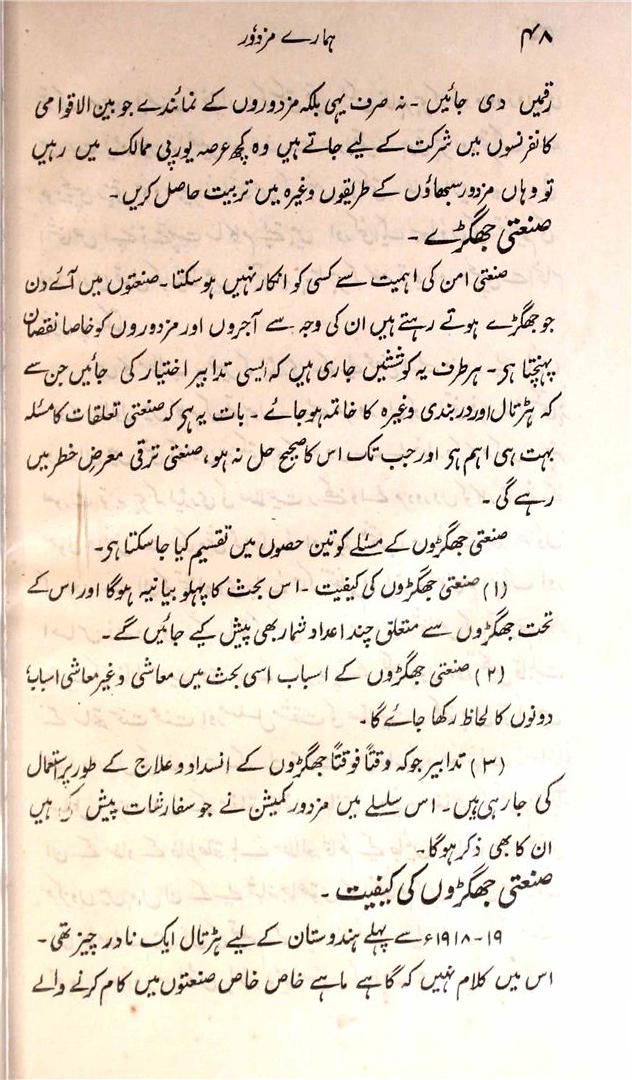 ۴۸
ہمارے مزدور
رقمیں دی جائیں ۔ نہ صرف یہی بلکہ مزدوروں کے نمائندے جو بین الاقوامی
کانفرنسوں میں شرکت کے لیے جاتے ہیں وہ کچھ عرصہ یورپی ممالک میں رہیں
تو وہاں مزدور سبھاؤں کے طریقوں وغیرہ میں تربیت حاصل کریں ۔
صنعتی جھگڑے ۔
صنعتی امن کی اہمیت سے کسی کو انکار نہیں ہو سکتا ۔ صنعتوں میں آئے دن
جو جھگڑے ہوتے رہتے ہیں ان کی وجہ سے آجروں اور مزدوروں کو خاصا نقصان
پہنچتا ہی ۔ ہر طرف یہ کوششیں جاری ہیں کہ ایسی تدابیر اختیار کی جائیں جن سے
کہ ہڑتال اور دربندی وغیرہ کا خاتمہ ہو جائے ۔ بات یہ ہی کہ صنعتی تعلقات کا مسئلہ
بہت ہی اہم ہی اور جب تک اس کا صحیح حل نہ ہو، صنعتی ترقی معرضِ خطر میں
رہے گی ۔
صنعتی جھگڑوں کے مسئلے کو تین حصوں میں تقسیم کیا جا سکتا ہی ۔
(۱) صنعتی جھگڑوں کی کیفیت ۔ اس بحث کا پہلو بیانیہ ہوگا اور اس کے
تحت جھگڑوں سے متعلق چند اعداد شمار بھی پیش کیے جائیں گے ۔
(۲) صنعتی جھگڑوں کے اسباب اسی بحث میں معاشی و غیر معاشی اسباب
دونوں کا لحاظ رکھا جائے گا ۔
(۳) تدابیر جو کہ وقتاً فوقتاً جھگڑوں کے انسداد و علاج کے طور پر استعمال
کی جا رہی ہیں ۔ اس سلسلے میں مزدور کمیشن نے جو سفارشات پیش کی ہیں
ان کا بھی ذکر ہوگا ۔
صنعتی جھگڑوں کی کیفیت ۔
۱۹-۱۹۱۸ء سے پہلے ہندوستان کے لیے ہڑتال ایک نادر چیز تھی ۔
اس میں کلام نہیں کہ گاہے ماہے خاص خاص صنعتوں میں کام کرنے والے